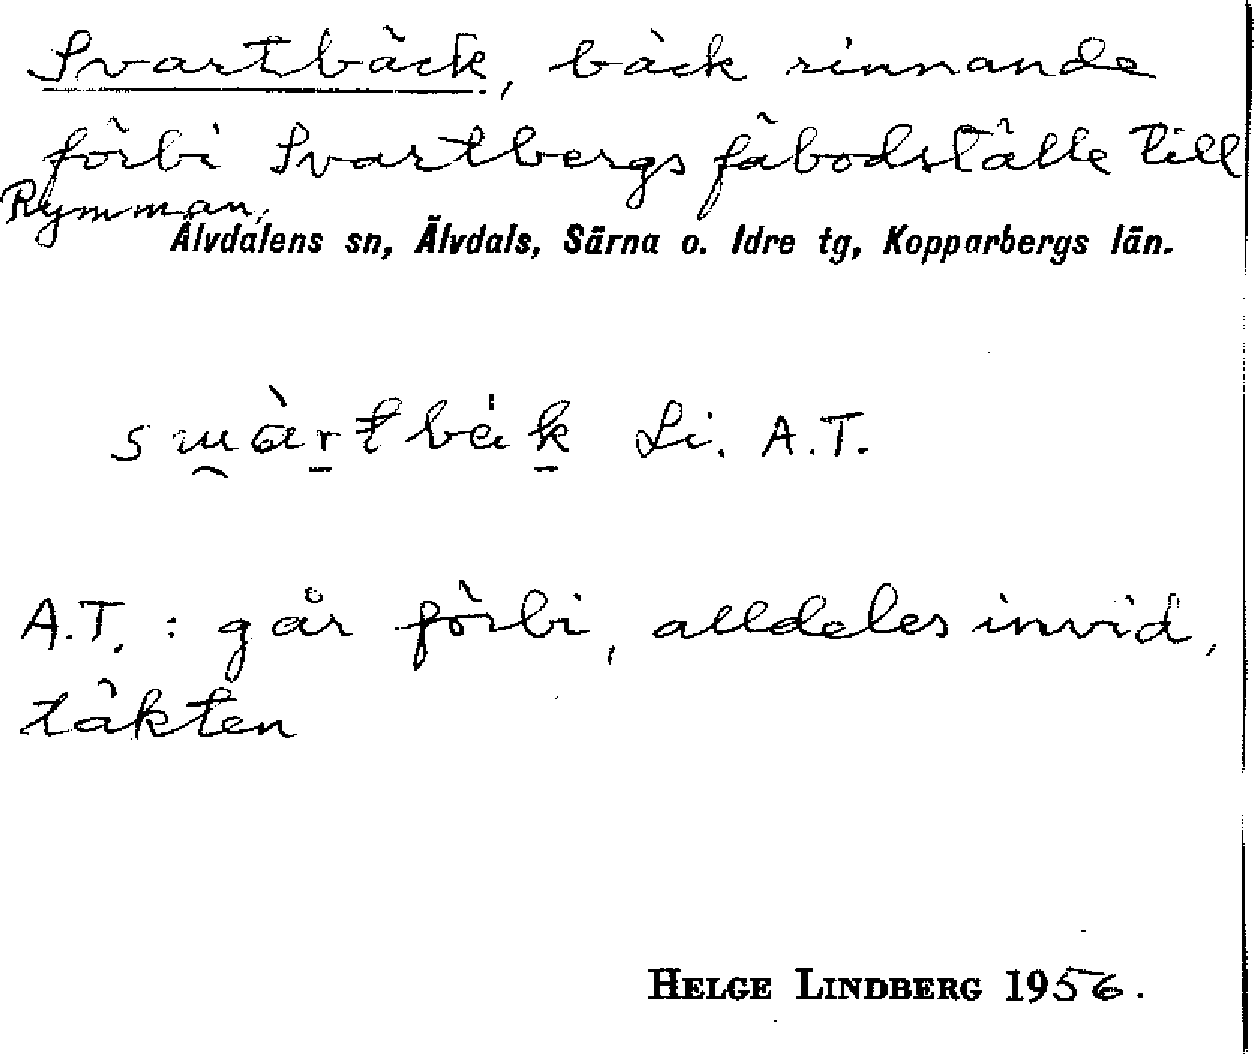 Svartbäck, bäck rinnande
förbi Svartbergs fäbodställe till
Rymman,
Älvdalens sn, Älvdals, Särna o. Idre tg, Kopparbergs län.
Li. A.T.
A.T. : går förbi, alldeles invid,
täkten
HELGE LINDBERG 1956.